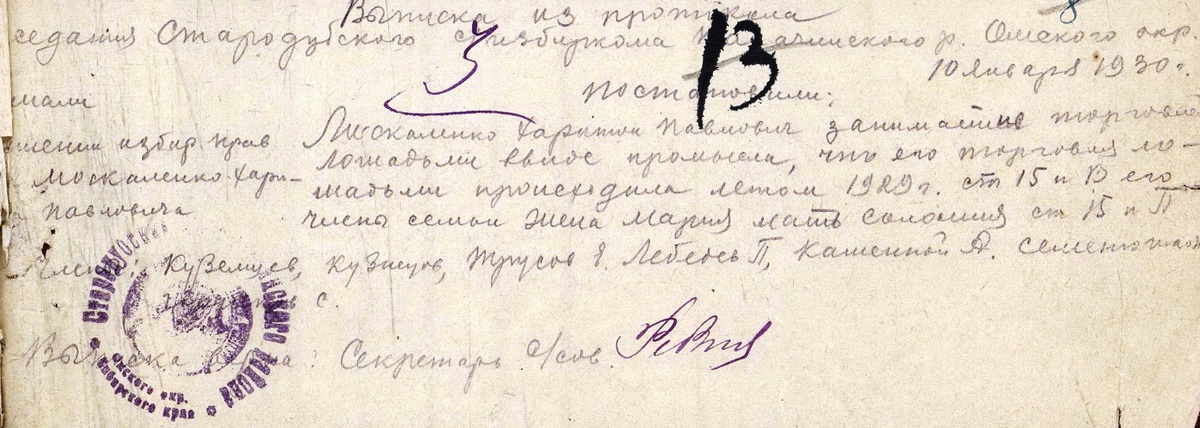 Выписка из протокола
седания Стародубского с/избиркома Казачинского р. Омского окр.
8
3
13
10 Января 1930 г.
Постановили:
Москаленко Харитон Павлович занимался торговле
шении избир прав
лошадьми ввиде промысла, что его торговля ло-
Москаленко Хари-
шадьми происходила летом 1929 г. ст 15 п В его
Павловича
члены семьи жена Мария мать Соломия ст 15 п П
Кузнецов, Трусов Я. Лебедь П, Каменной А.
с.
Выписка верна. Секретарь с/сов.
Стародубский
района
Омского окр.
Сибирского края